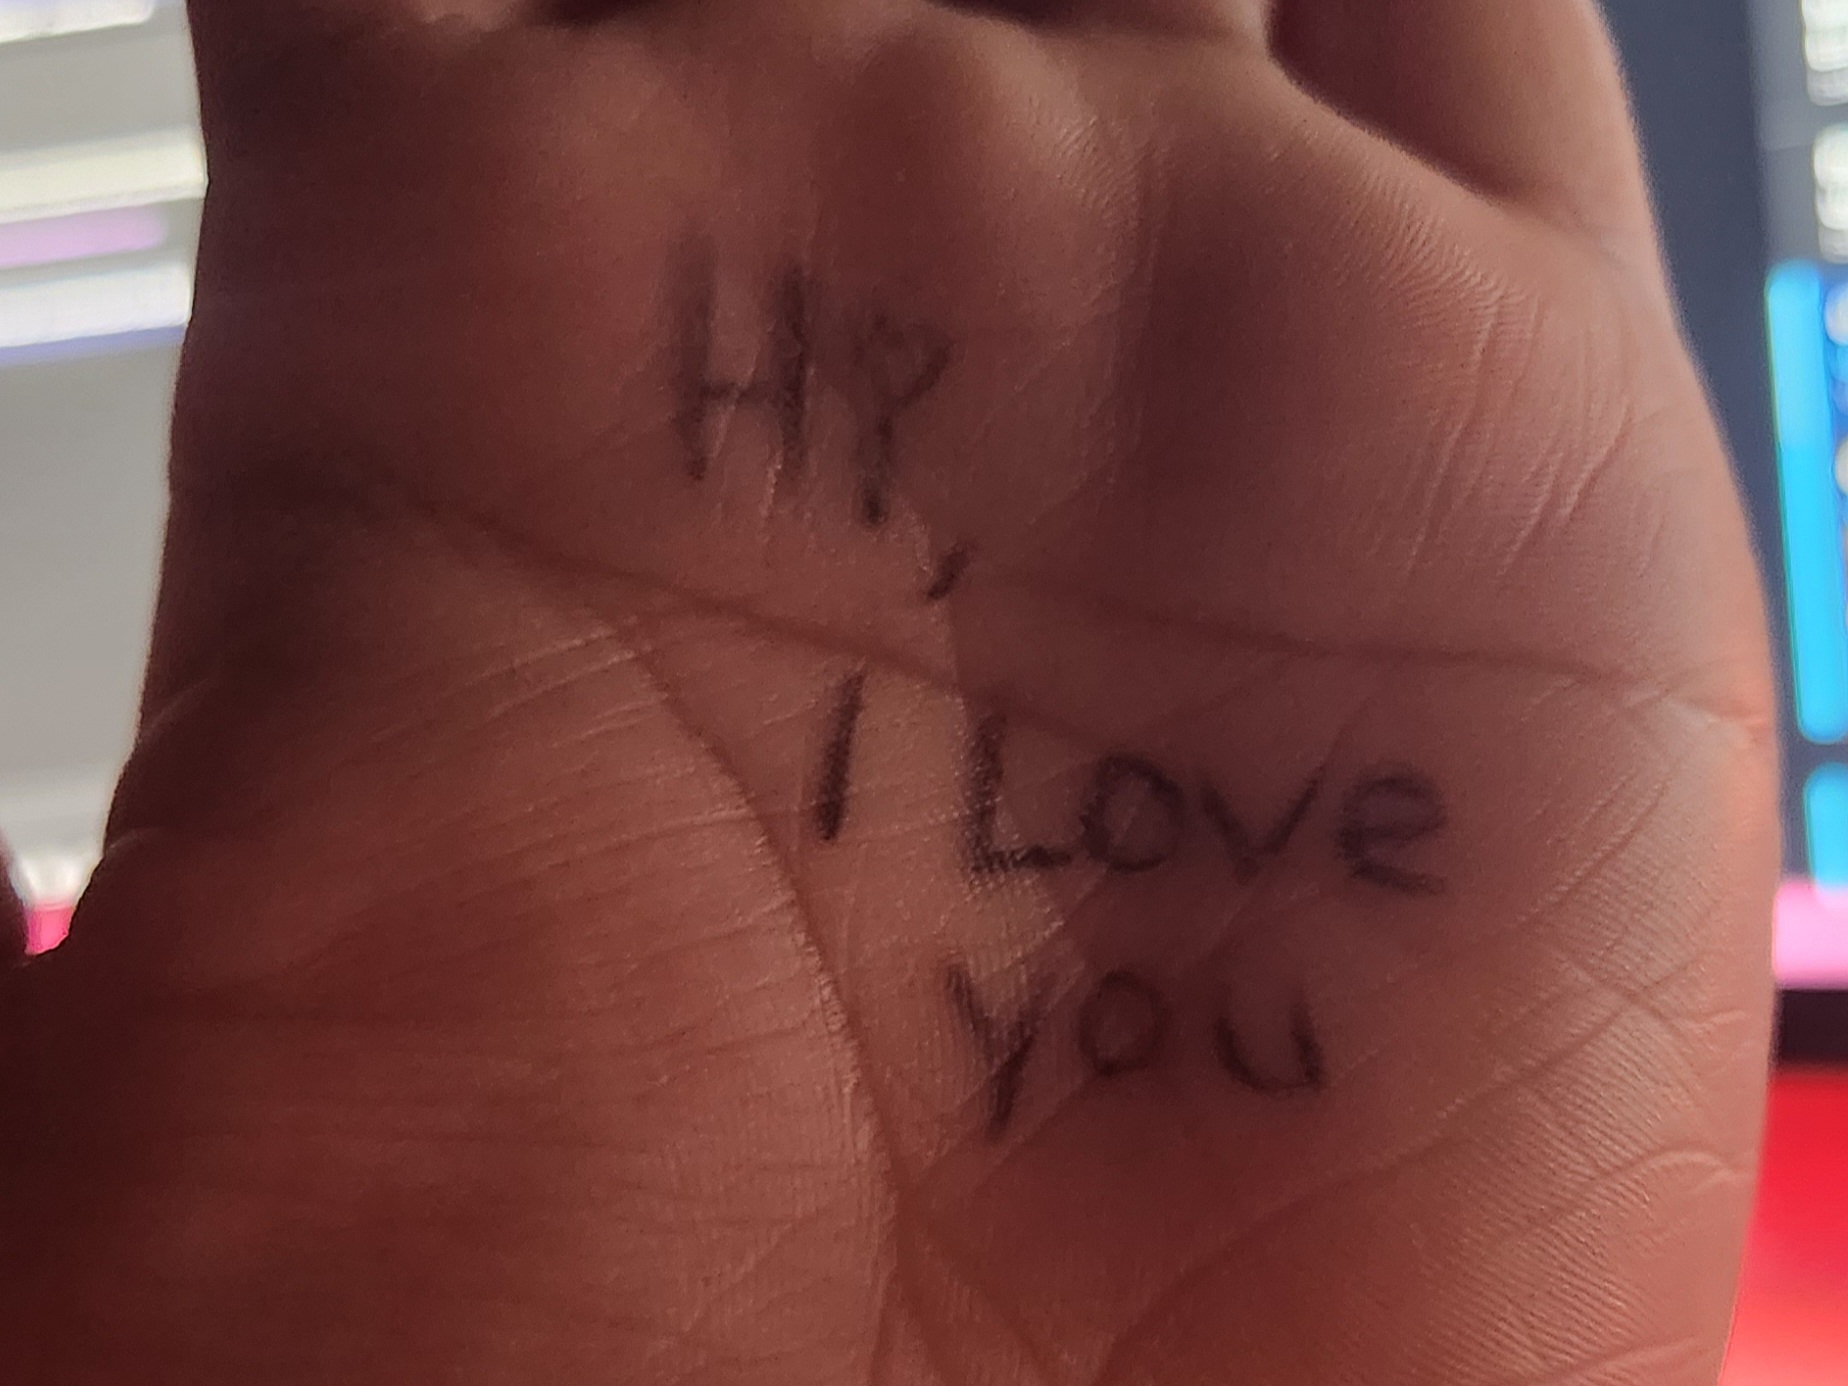 HP
I Love
You